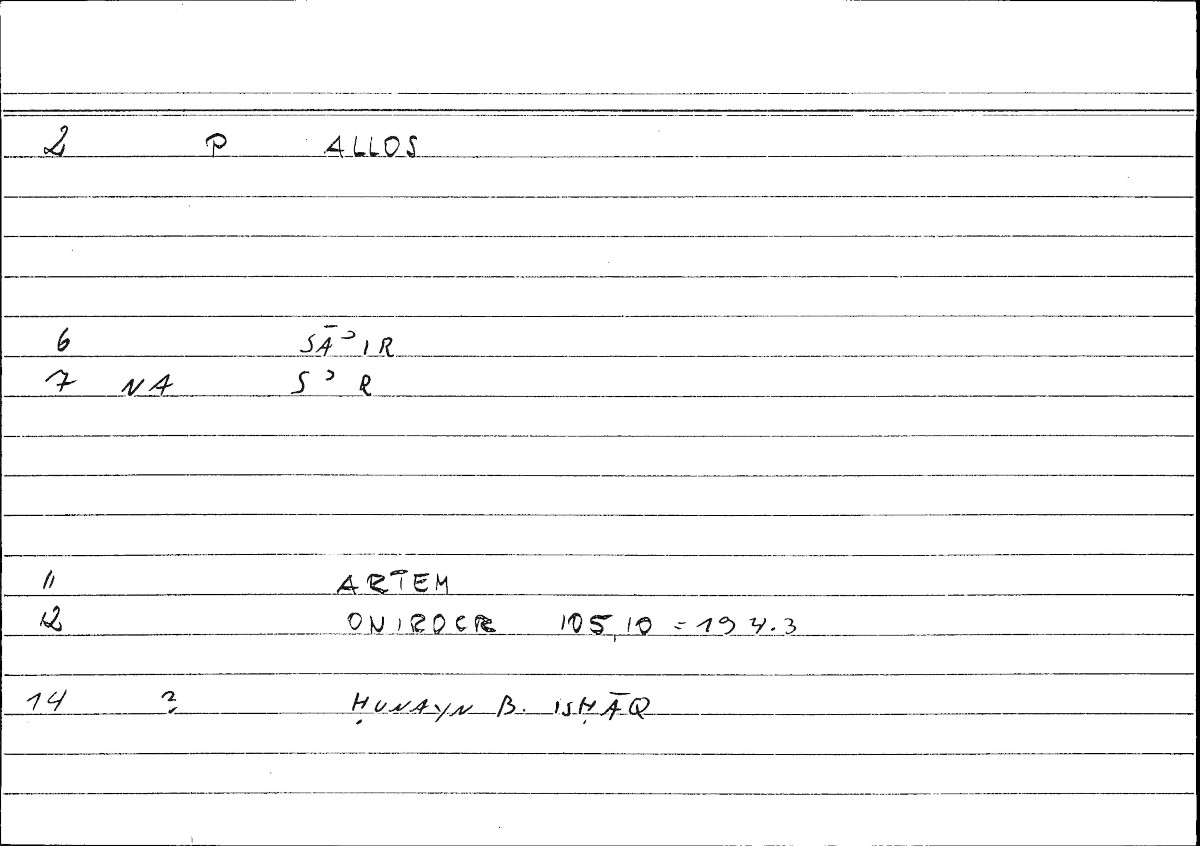 2 P ALLOS
6 SĀʾIR
7 NA SʾR
11 ARTEM
12 ONIROCR 105,10 = 194.3
14 ? ḤUNAYN B. ISḤĀQ